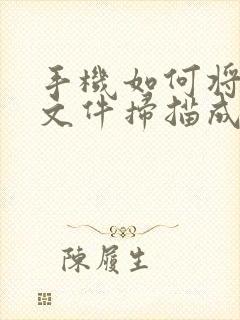 手機如何將
文件掃描成
陳履生